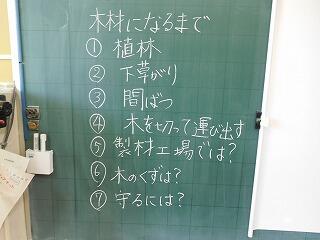 木材になるまで
① 植林
② 下草がり
③ 間ばつ
④ 木を切って運び出す
⑤ 製材工場では?
⑥ 木のくずは?
⑦ 守るには?